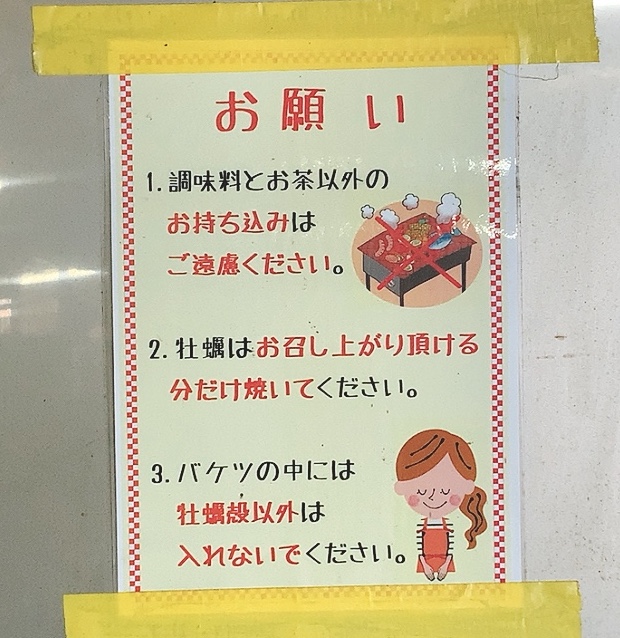 お願い
1. 調味料とお茶以外の
お持ち込みは
ご遠慮ください。
2. 牡蠣はお召し上がり頂ける
分だけ焼いてください。
3. バケツの中には
牡蠣殻以外は
入れないでください。